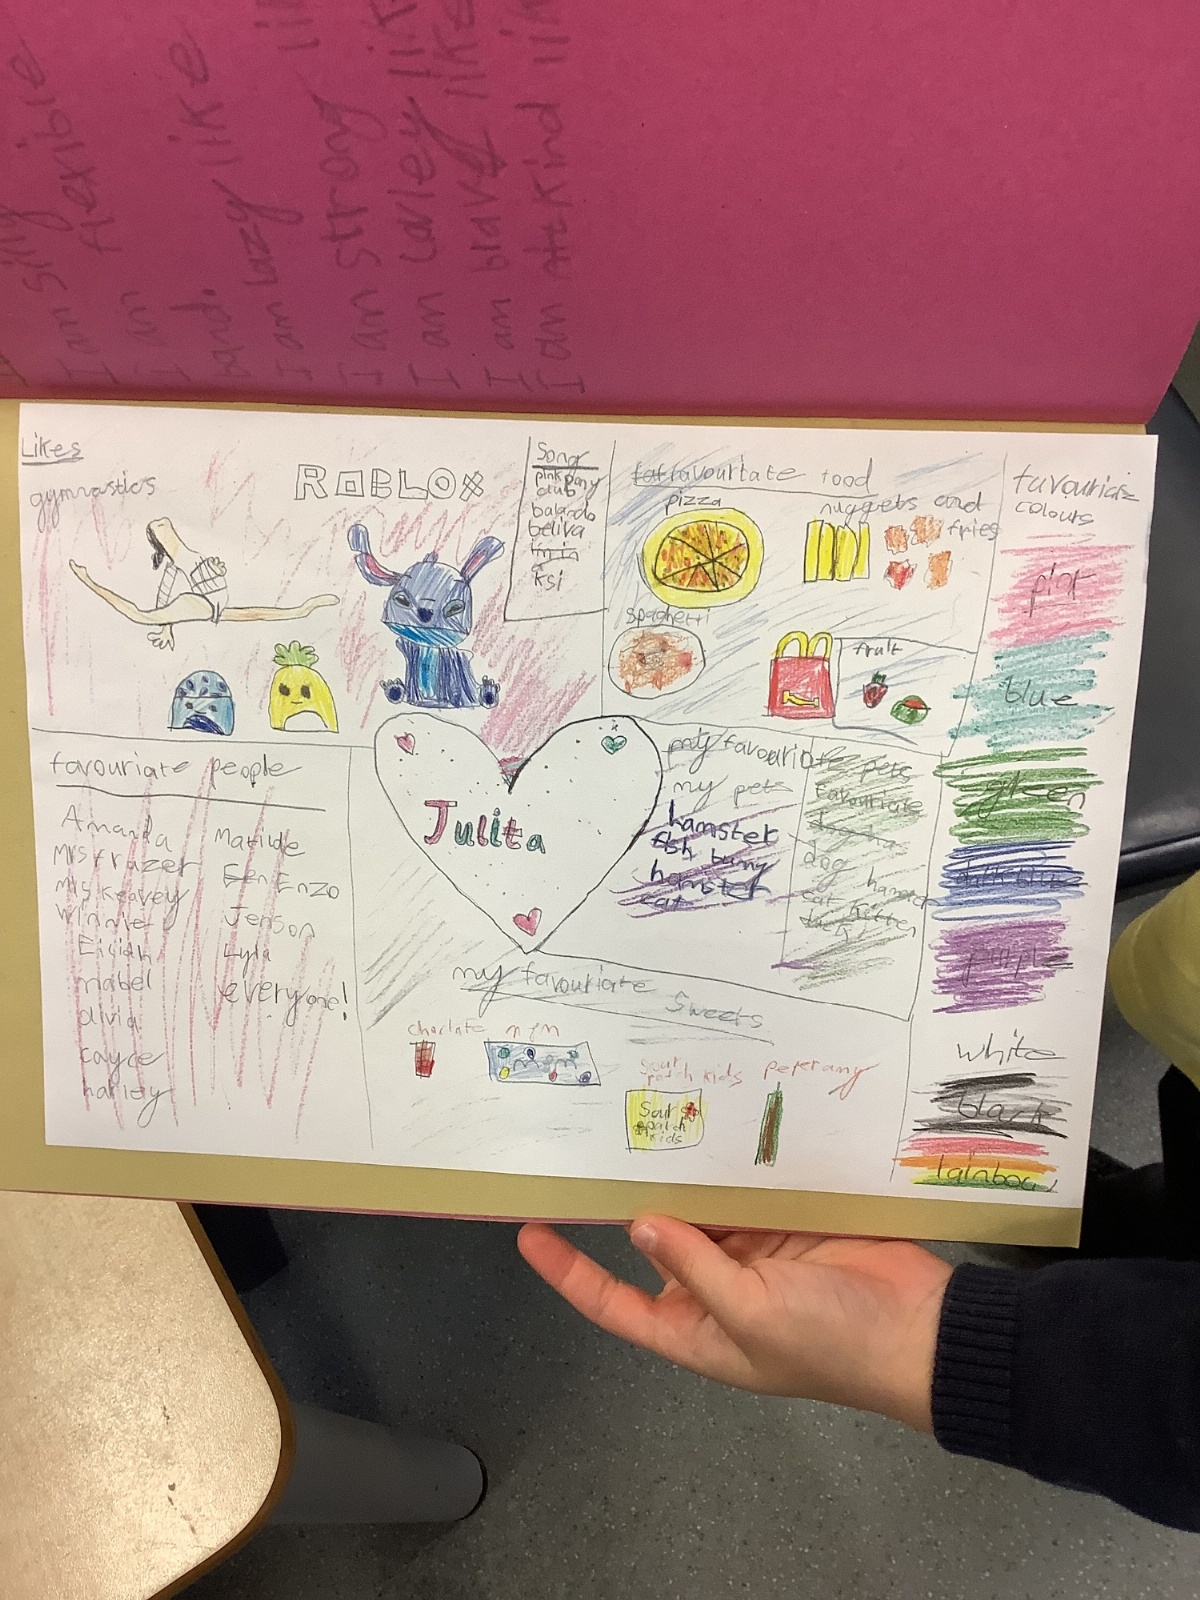 I am silly
I am flexible
band.
I am lazy like
I am strong
I am carley
I am
I am kind
Likes
gymnastics
ROBLOX
Song
pink pony
club
balando
beliva
ksi
favouriate food
pizza
nuggets and
fries
spaghetti
fruit
favouriate
colours
pink
blue
green
dark blue
purple
white
black
rainbow
favouriate people
Amanda
Mrs frazer
Mrs keavey
winnie
Eiliah
mabel
olivia
cayce
harley
Matilde
Enzo
Jenson
Lyla
everyone!
Julita
my favouriate pets
my pets
hamster
fish bunny
hamster
cat
favouriate
dog
cat kitten
my favouriate Sweets
choclate
m&m
m&m
sour
patch kids
Sour
patch
kids
peperamy